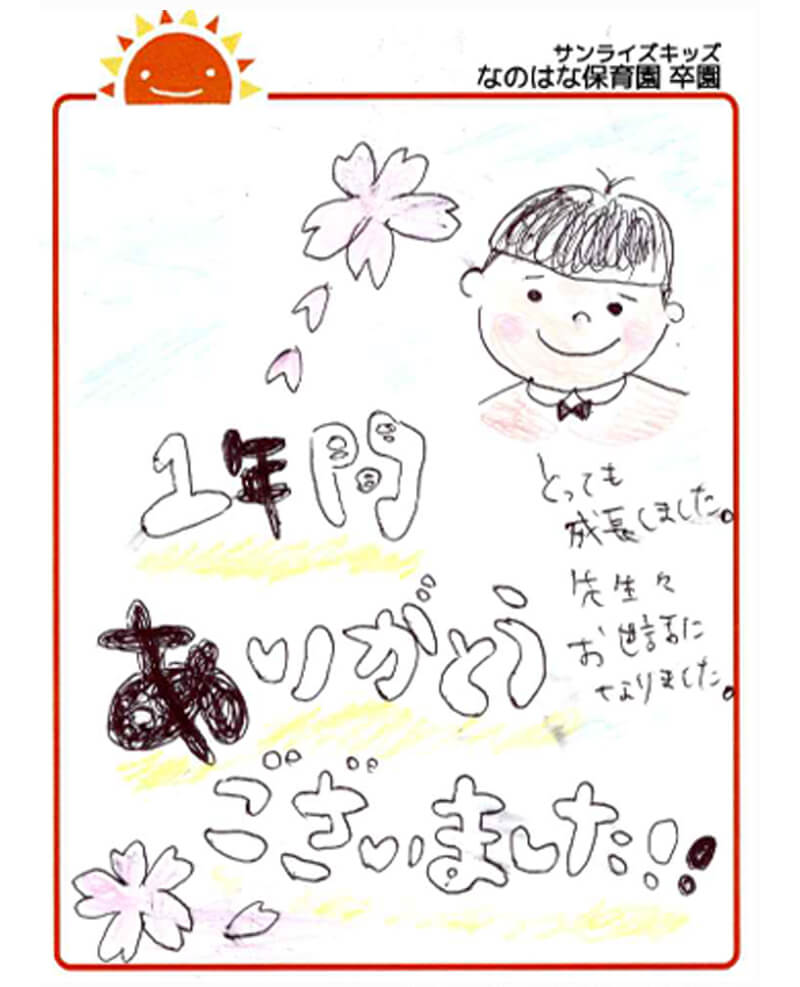 サンライズキッズ
なのはな保育園 卒園
1年間
とっても
成長しました。
先生々
お世話に
なりました。
ありがとう
ございました!!